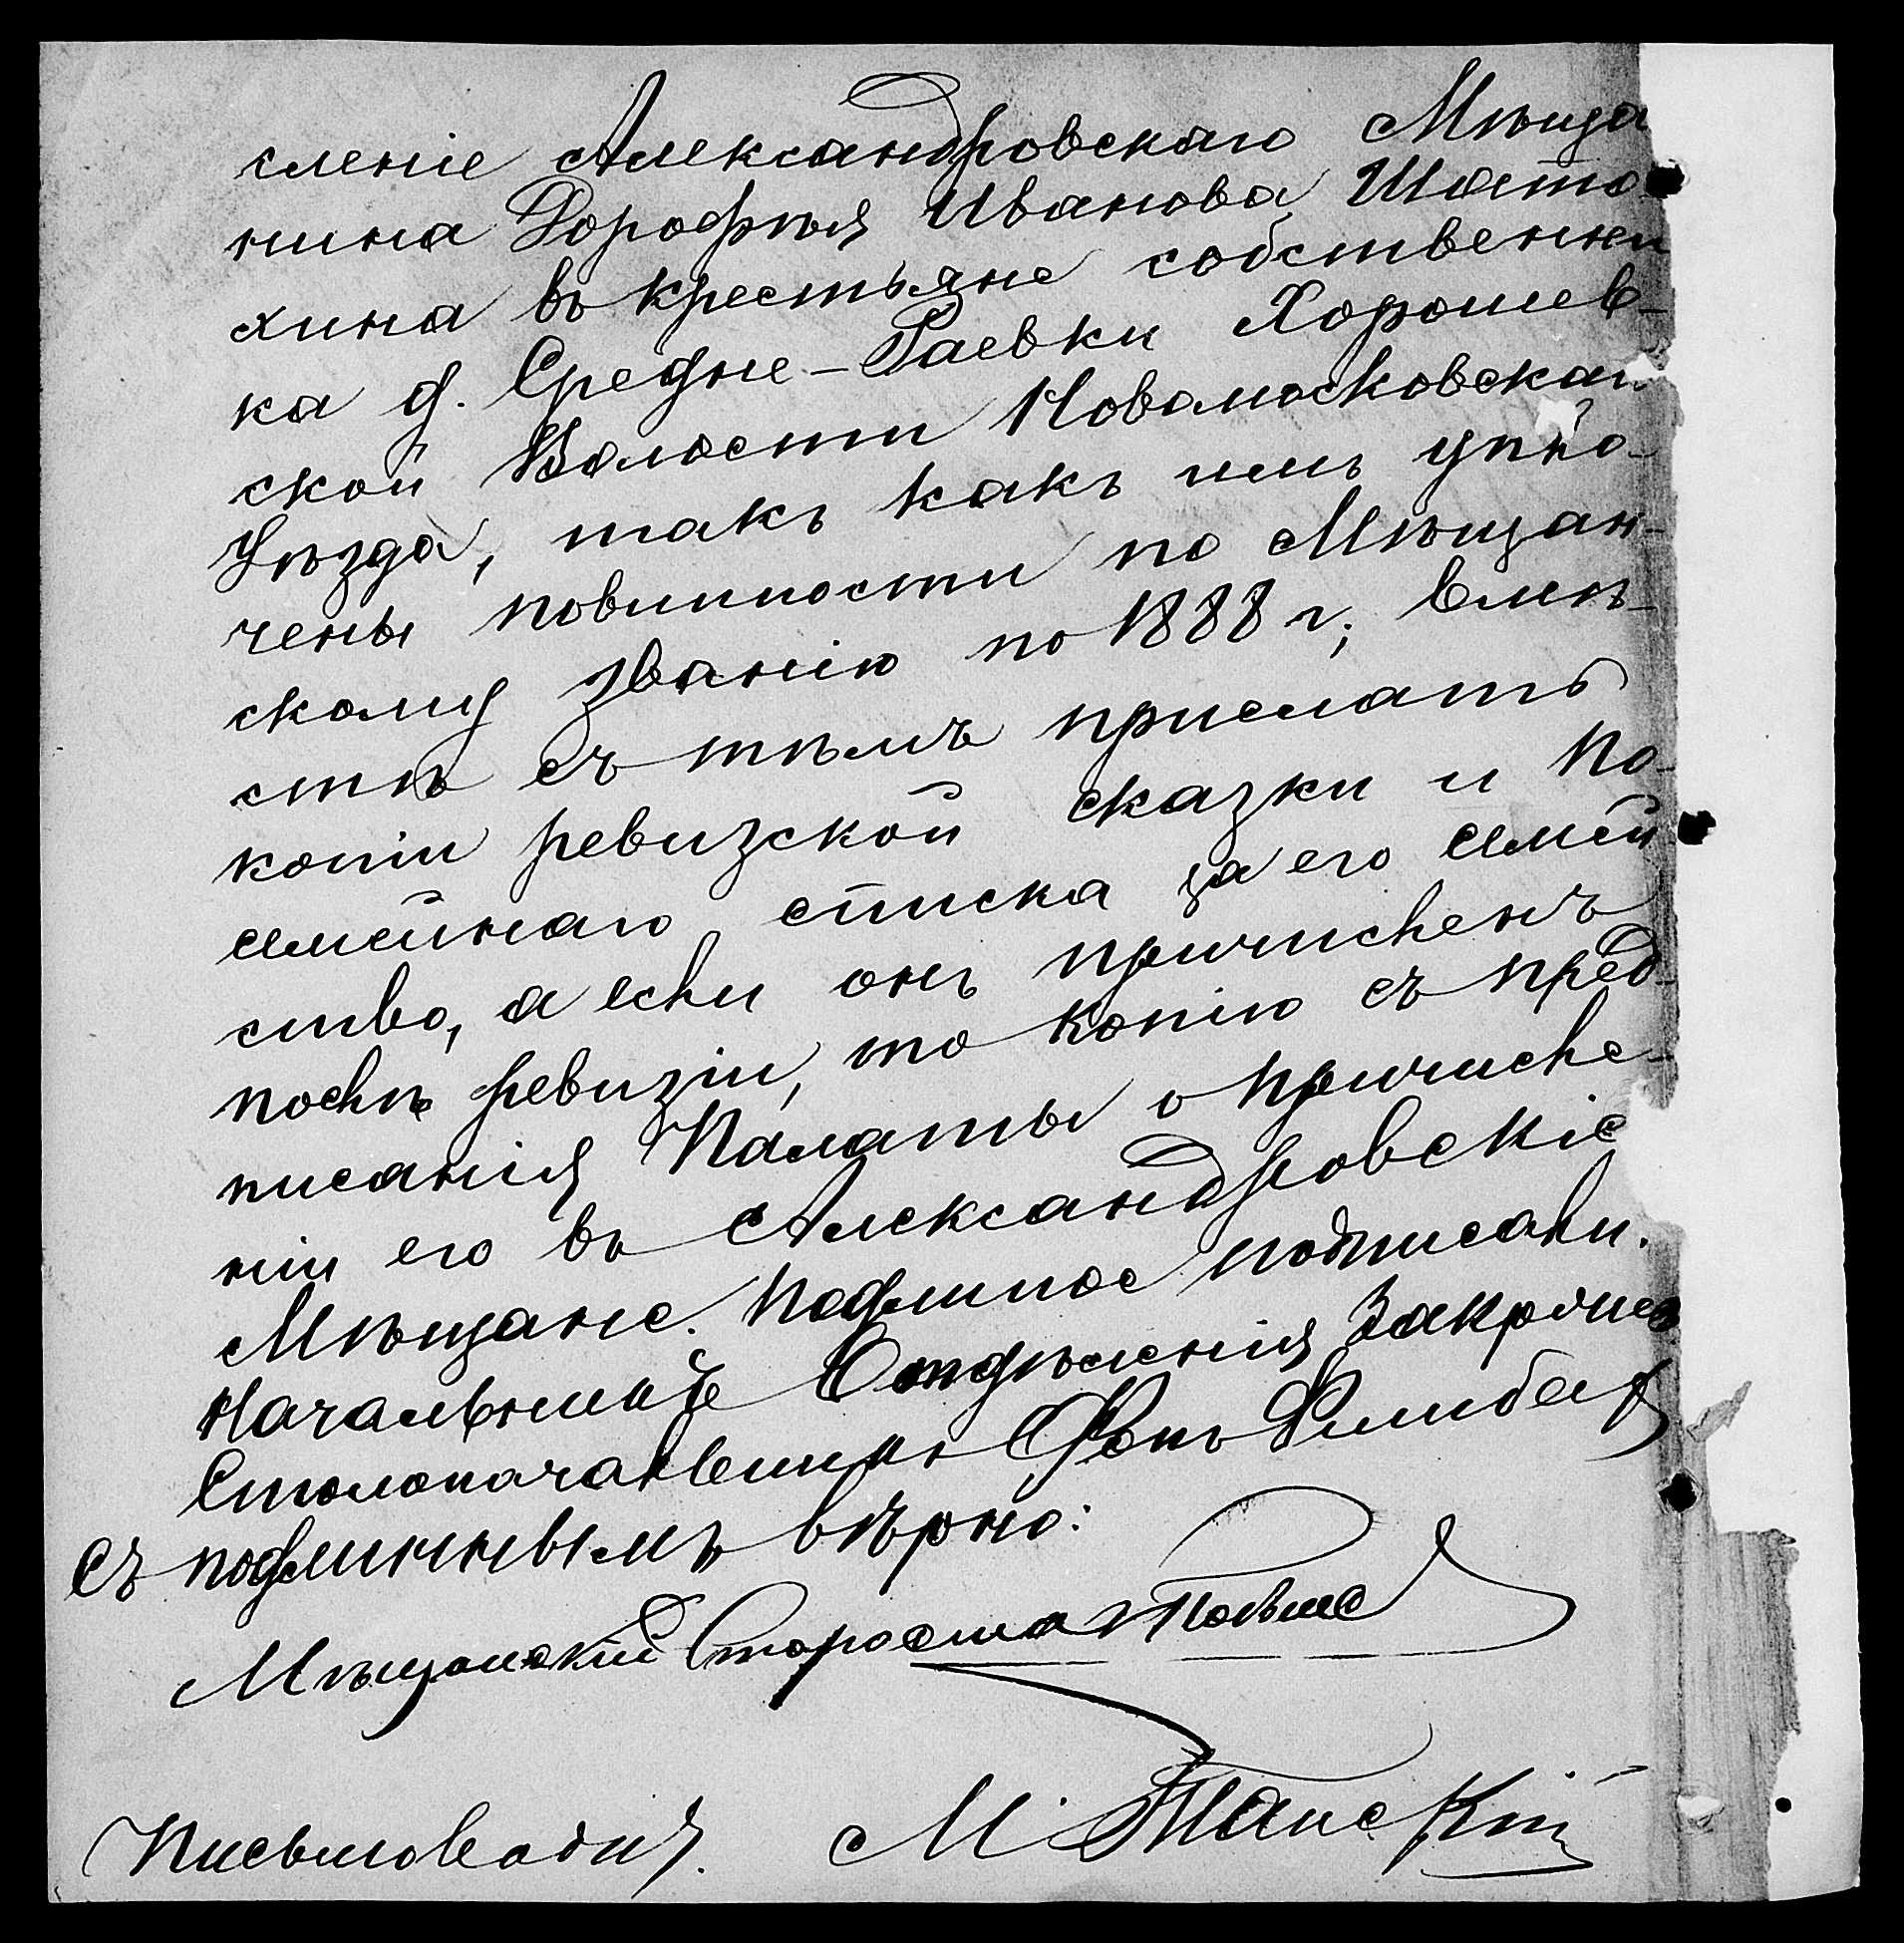 сленіе Александровскаго Мѣща
нина Дорофѣя Иванова Шато-
хина въ крестьяне собственни
ка д. Средне-Раевки Хорошев-
ской Волости Новомосковскаго
Уѣзда, такъ какъ имъ упла-
чены повинности по Мѣщан-
скому званію по 1888 г; вмѣ-
стѣ съ тѣмъ прислать
копіи ревизской сказки и по-
семейнаго списка за его семей
ство, а если онъ причисленъ
послѣ ревизіи, то копію съ пред-
писанія Палаты о причисле-
ніи его въ Александровскіе
Мѣщане. Подлинное подписали.
Начальникъ Отдѣленія
Столоначальникъ Фонъ
Съ подлиннымъ вѣрно:
Мѣщанскій Староста
Письмоводит. М. Танскій